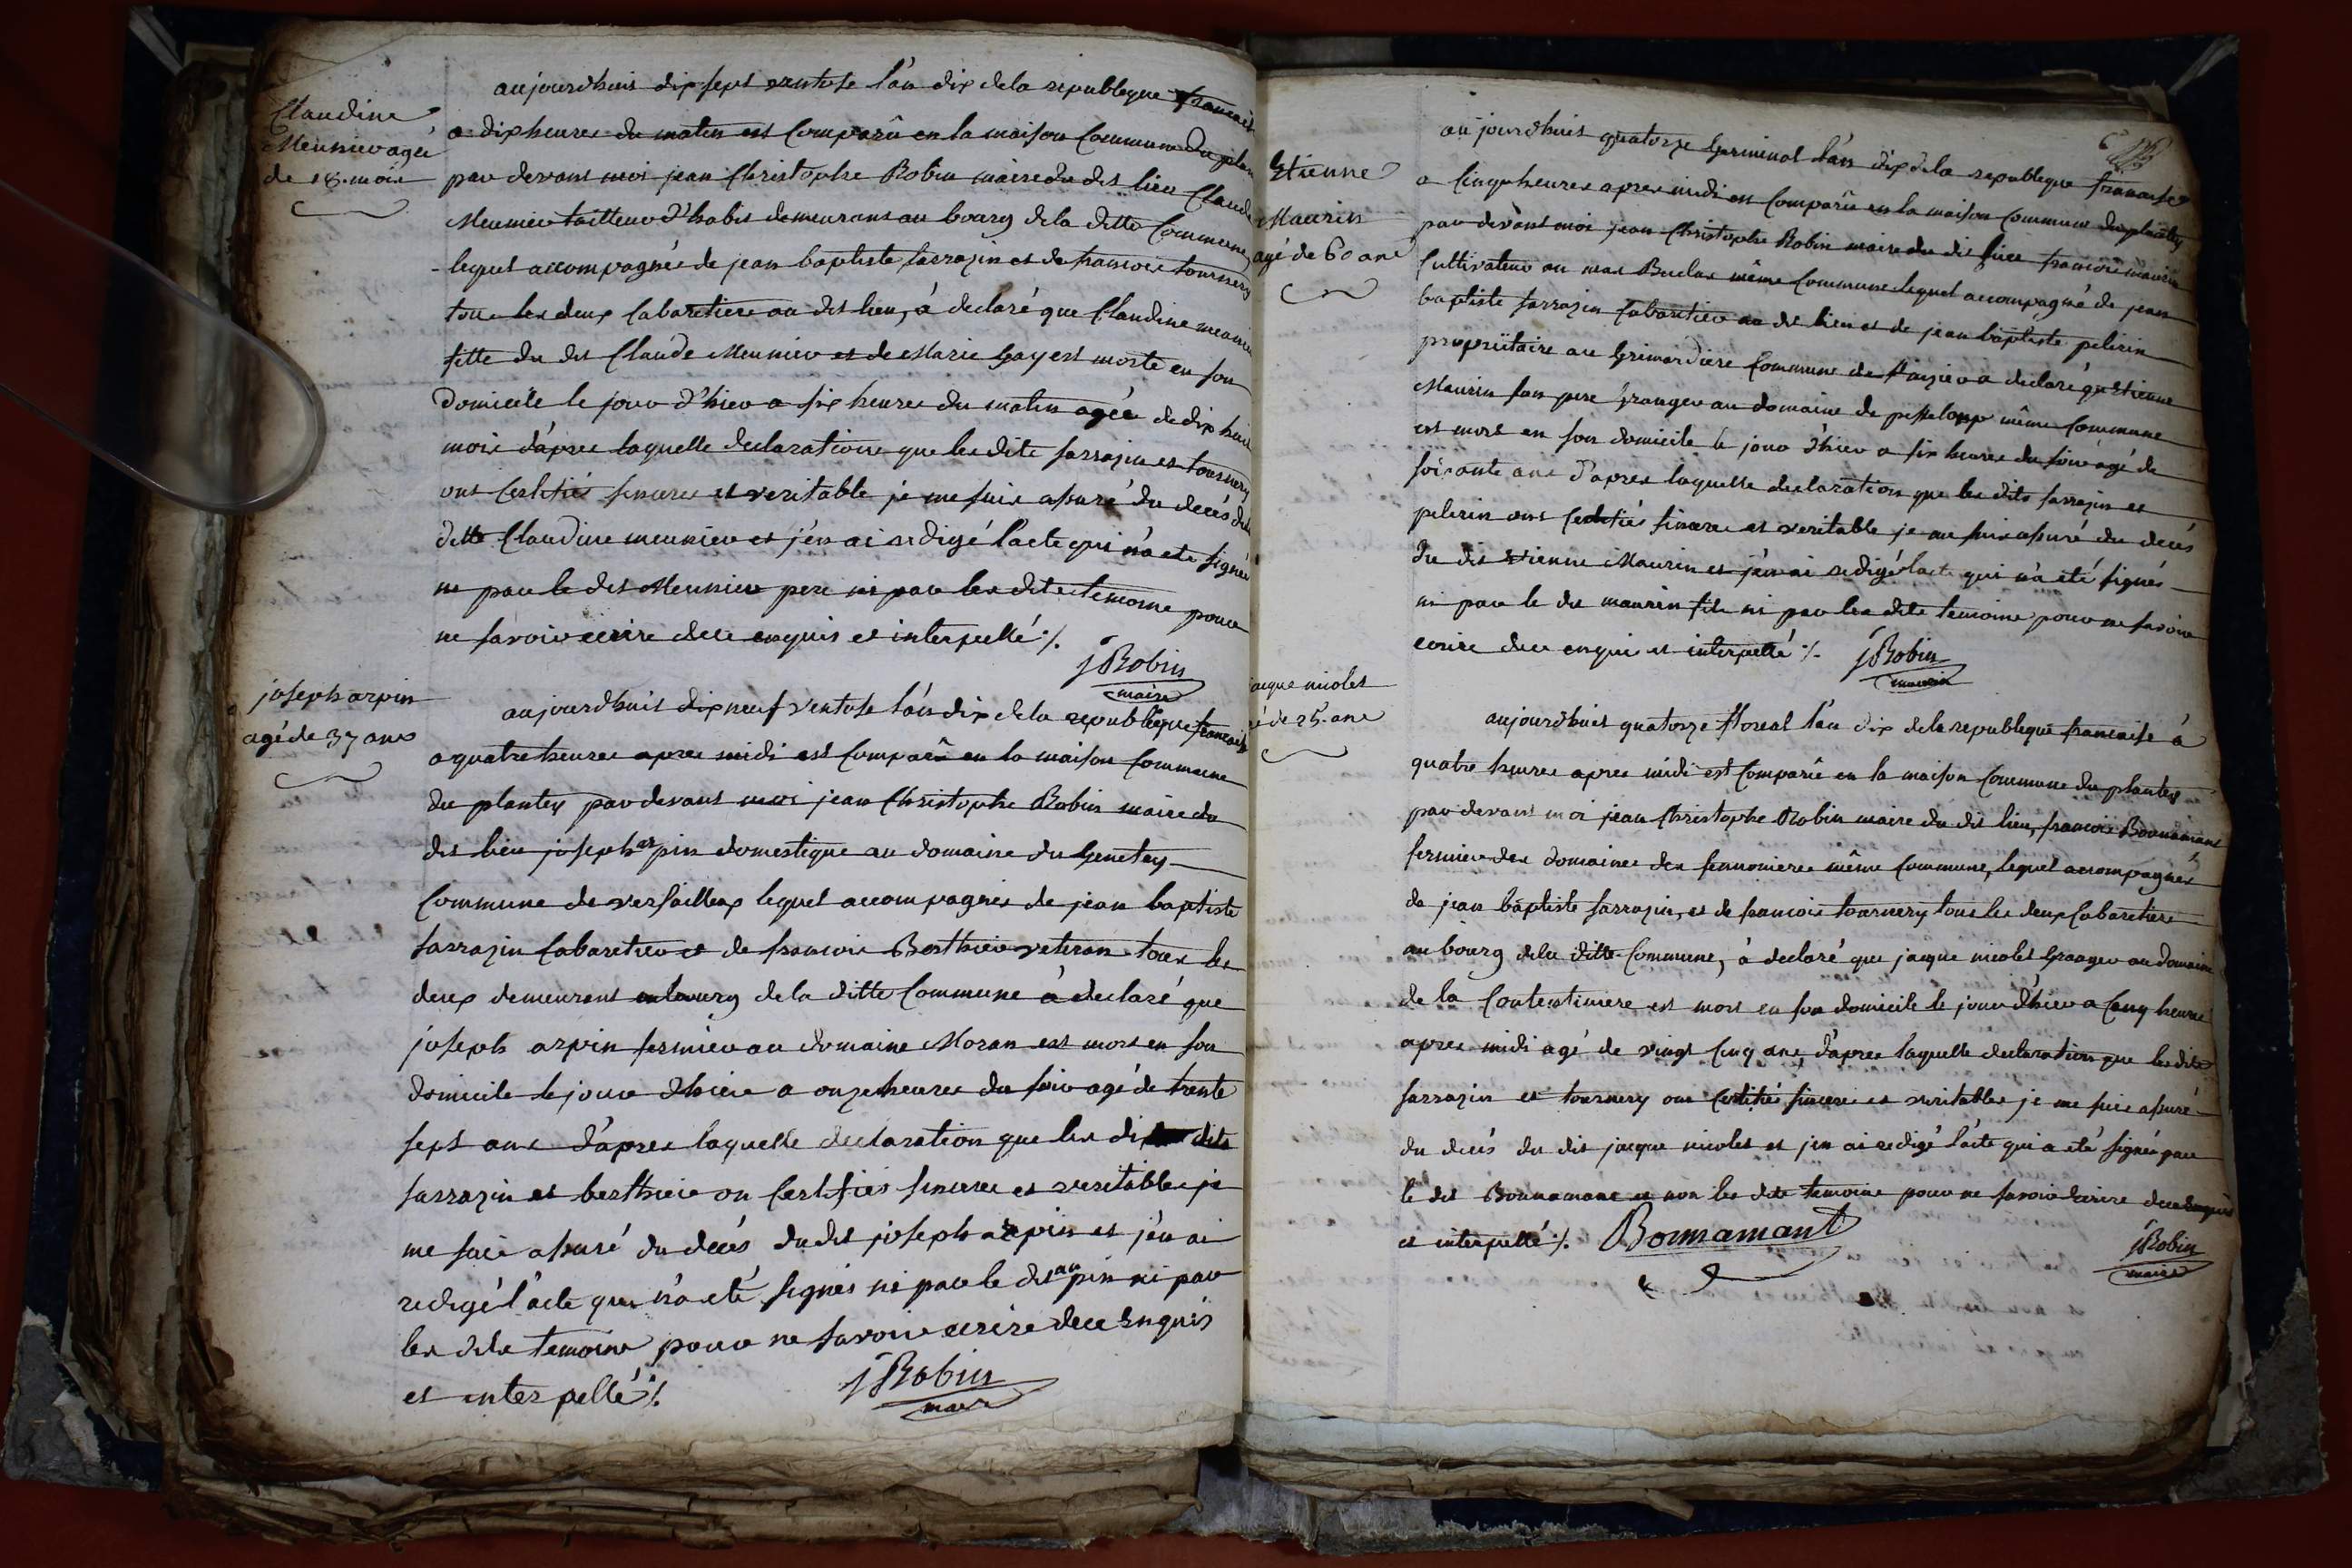 Claudine
Meunier agée
de 18. mois
aujourdhuis dix sept ventose l'an dix dela republeque francaise
a dix heures du matin est Comparû en la maison Commune du plan
par devant moi jean Christophe Robin maire du dit lieu Claude
Meunier tailleur d'habit demeurant au bourg dela ditte Commune
lequel accompagnés de jean baptiste sarrazin et de francois tournery
tous les deux Cabaretiers au dit lieu, à declaré que Claudine meunier
fille du dit Claude Meunier et de Marie Gay est morte en son
domicile le jour d'hier a six heures du matin agée de dix huit
mois d'apres laquelle declarations que les dits sarrazin et tournery
ont Certifiés sinceres et veritable je me suis assuré du decés dela
ditte Claudine meunier et j'en ai redigé l'acte qui n'a eté signé
ni par le dit Meunier pere ni par les dits temoins pour
ne savoir ecrire de ce enquis et interpellé ./.
JRobin
maire
joseph arpin
agé de 37 ans
aujourdhuis dix neuf ventose l'an dix dela republeque francaise
a quatre heures apres midi est Comparû en la maison Commune
du plantey par devant moi jean Christophe Robin maire du
dit lieu joseph arpin domestique au domaine du Genetey
Commune de versailleux lequel accompagnés de jean baptiste
sarrazin Cabaretier et de francois Berthier veteran tous les
deux demeurant au bourg dela ditte Commune à declaré que
joseph arpin fermier au domaine Moran est mort en son
domicile le jour d'hier a onze heures du soir agé de trente
sept ans d'apres laquelle declaration que les dits
sarrazin et berthier on Certifiés sinceres et veritables je
me suis assuré du decés dudit joseph arpin et j'en ai
redigé l'acte qui n'a eté signés ni par le dit arpin ni par
les dits temoins pour ne savoir ecrire de ce enquis
et interpellé ./.
JRobin
maire
Etienne
Maurin
agé de 60 ans
aujourdhuis quatorze Germinal l'an dix dela republeque francaise
a Cinq heures apres midi est Comparû en la maison Commune du plantey
par devant moi jean Christophe Robin maire du dit lieu francois maurin
Cultivateur au mas Buclas même Commune lequel accompagné de jean
baptiste sarrazin Cabaretier au dit lieu et de jean baptiste pelerin
propriétaire au Grimardiere Commune de a declaré qu'Etienne
Maurin son pere Granger au domaine de même Commune
est mort en son domicile le jour d'hier a six heures du soir agé de
soixante ans d'apres laquelle declaration que les dits sarrazin et
pelerin ont Certifiés sincere et veritable je me suis assuré du decés
du dit etienne Maurin et j'en ai redigé l'acte qui n'a été signés
ni par le dit maurin fils ni par les dits temoins pour ne savoir
ecrire de ce enquis et interpellé ./.
JRobin
maire
jacque nicolet
agé de 25. ans
aujourdhuis quatorze floreal l'an dix dela republeque francaise à
quatre heures apres midi est Comparû en la maison Commune du plantey
par devant moi jean Christophe Robin maire du dit lieu, francois Bonnamant
fermier des domaines des même Commune, lequel accompagnés
de jean baptiste sarrazin, et de francois tournery tous les deux Cabaretiers
au bourg dela ditte Commune, à declaré que jacque nicolet Granger au domaine
de la est mort en son domicile le jour d'hier a Cinq heures
apres midi agé de vingt Cinq ans, d'apres laquelle declaration que les dits
sarrazin et tournery ont Certifiés sincere et veritables je me suis assuré
du decés du dit jacque nicolet et j'en ai redigé l'acte qui a eté signés par
le dit Bonnamant et non les dits temoins pour ne savoir ecrire de ce enquis
et interpellé ./.
Bonnamant
JRobin
maire